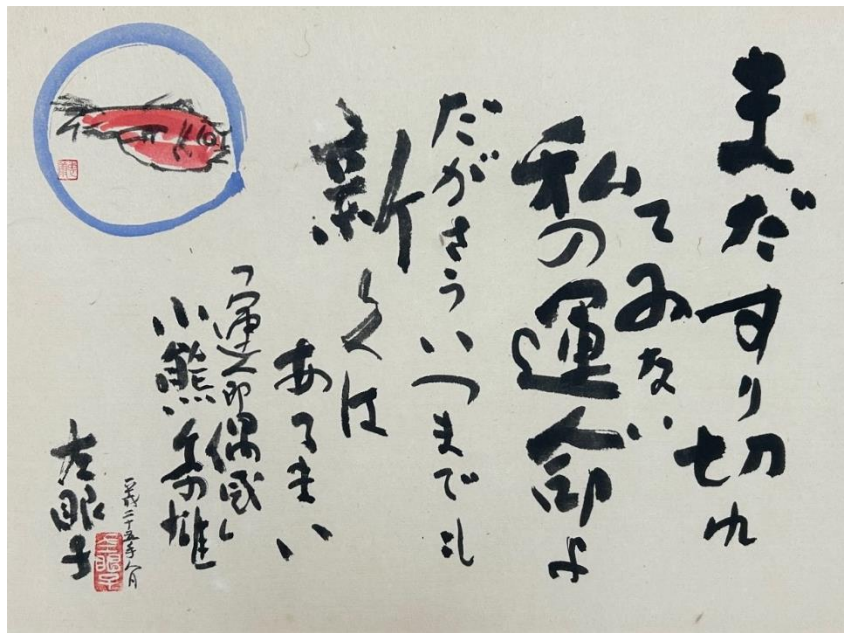 まだすり切れ
てみない
私の運命よ
だがさういつまでも
新しくは
あるまい
「運命偶感」
小熊秀雄
平成二十五年八月
左眼子
左眼子